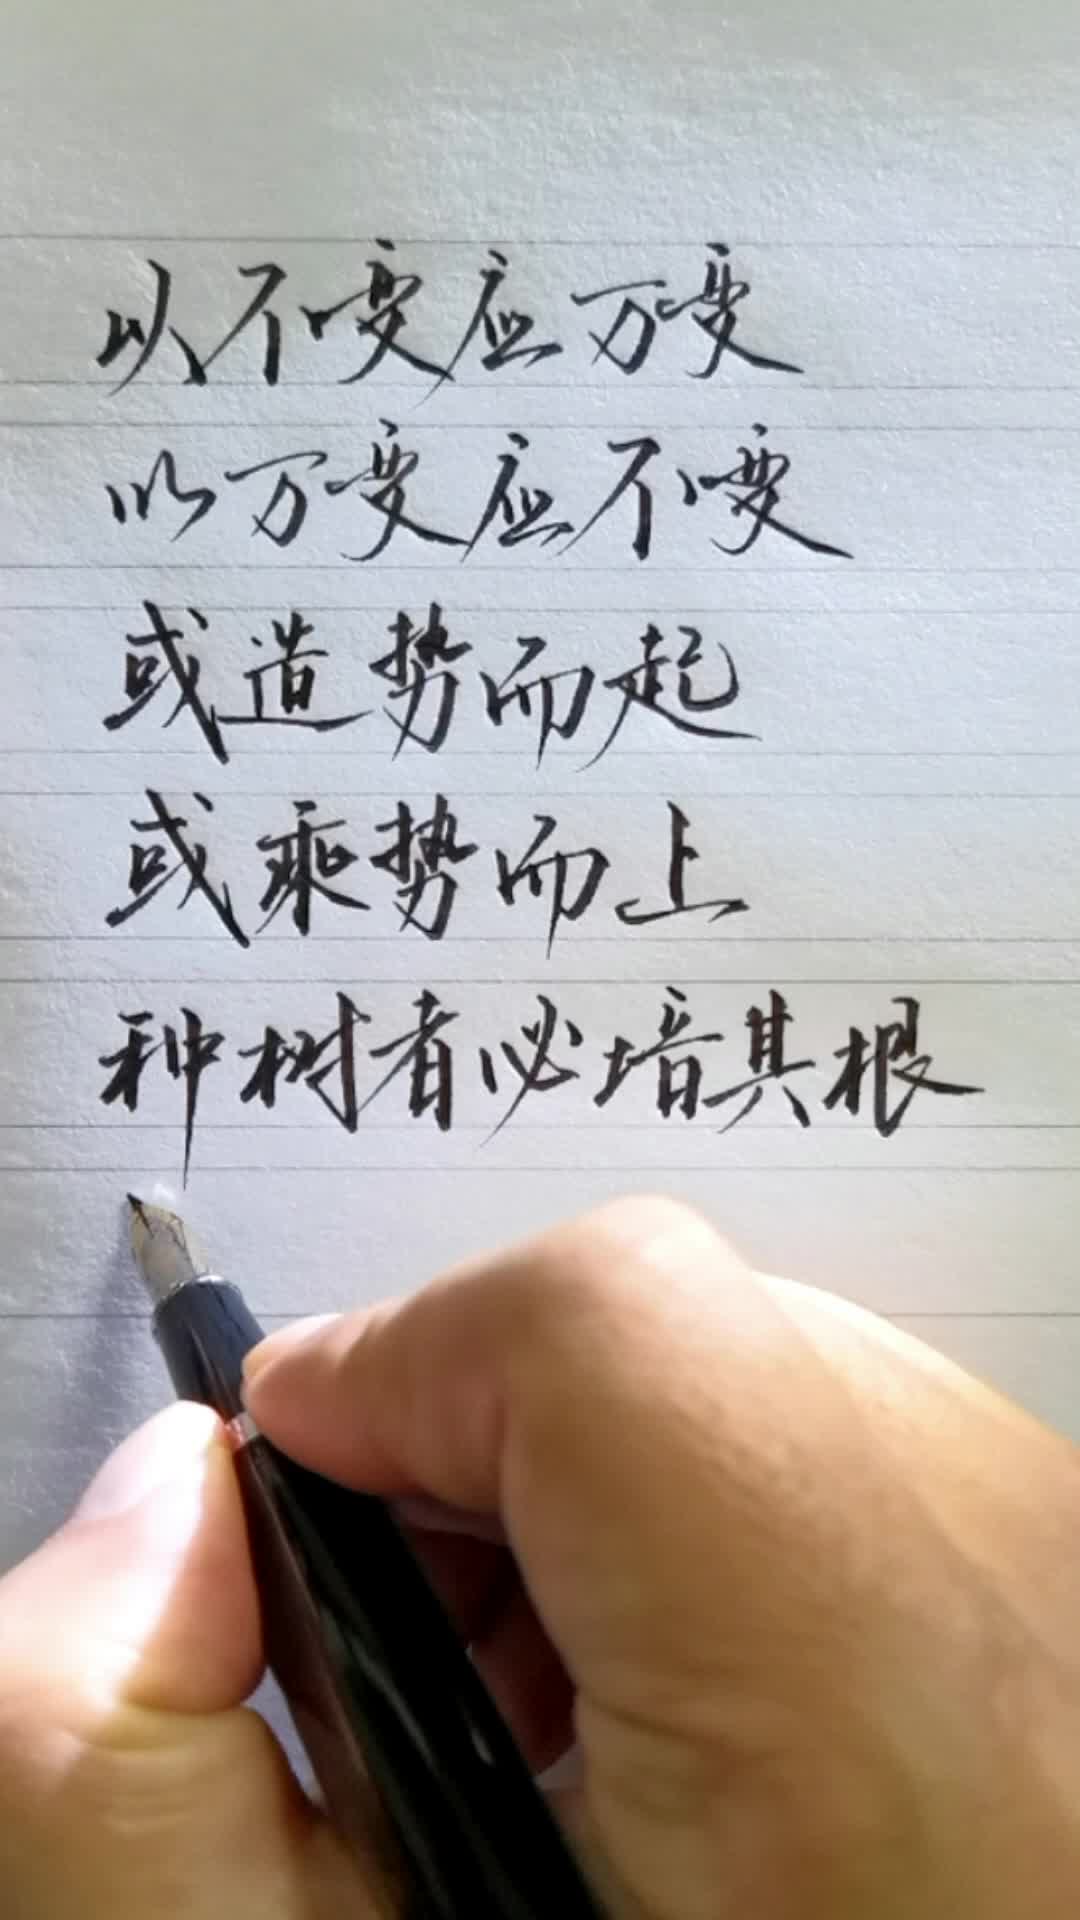 以不变应万变
以万变应不变
或造势而起
或乘势而上
种树者必培其根